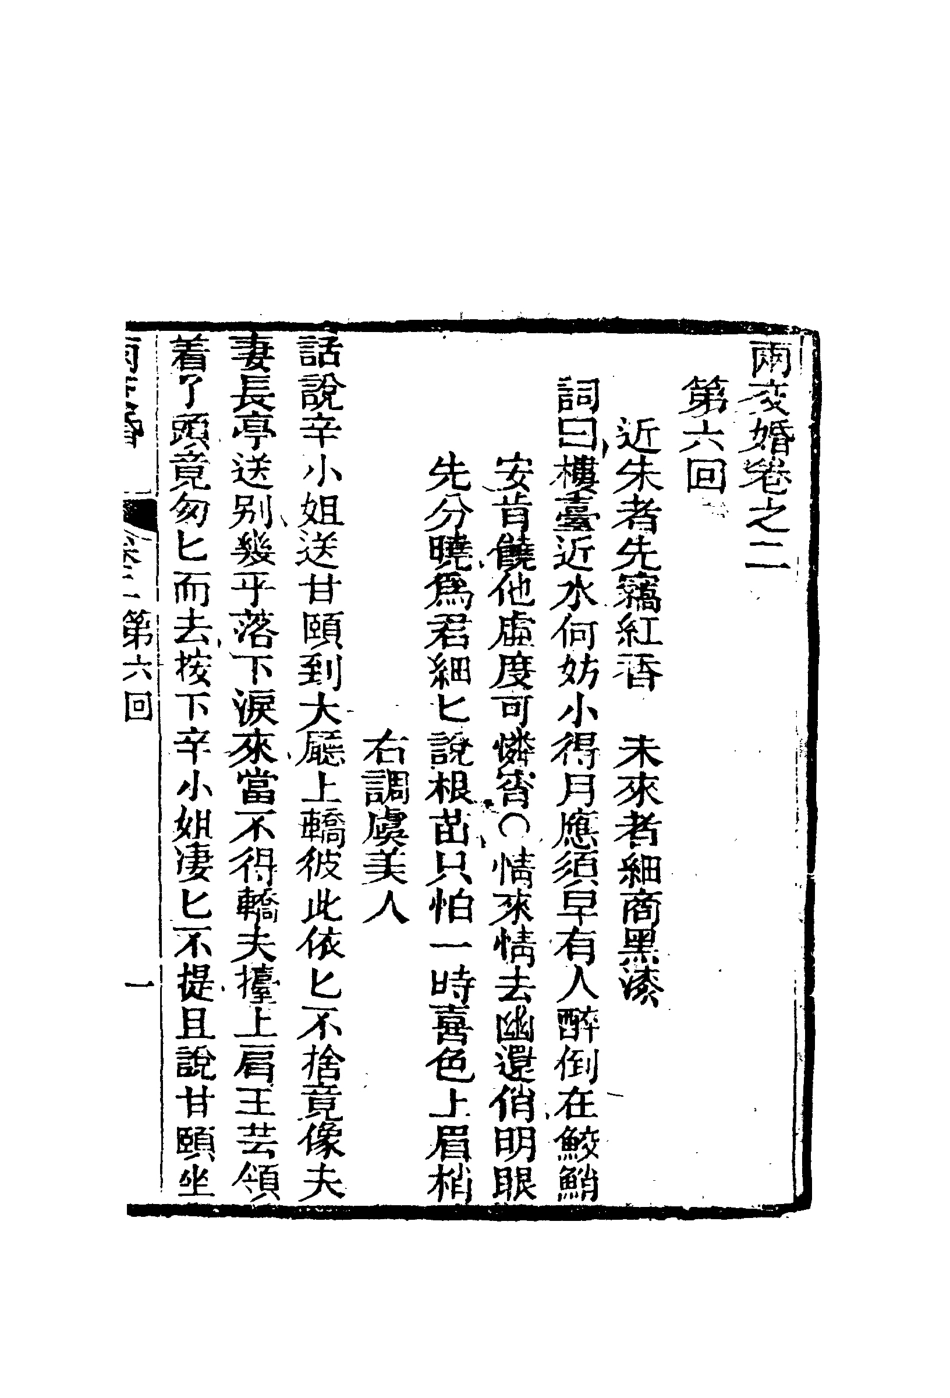 兩交婚卷之二
第六回
近朱者先竊紅香　未來者細商黑漆
詞曰樓臺近水何妨小得月應須早有人醉倒在鮫鮹
安肯饒他虛度可憐宵○情來情去幽還俏明眼
先分曉爲君細匕說根苗只怕一時喜色上眉梢
右調虞美人
話說辛小姐送甘頤到大廳上轎彼此依匕不捨竟像夫
妻長亭送别幾乎落下淚來當不得轎夫擡上肩王芸領
着了頭竟匆匕而去按下辛小姐凄匕不提且說甘頤坐
兩交婚　卷二　第六回　一